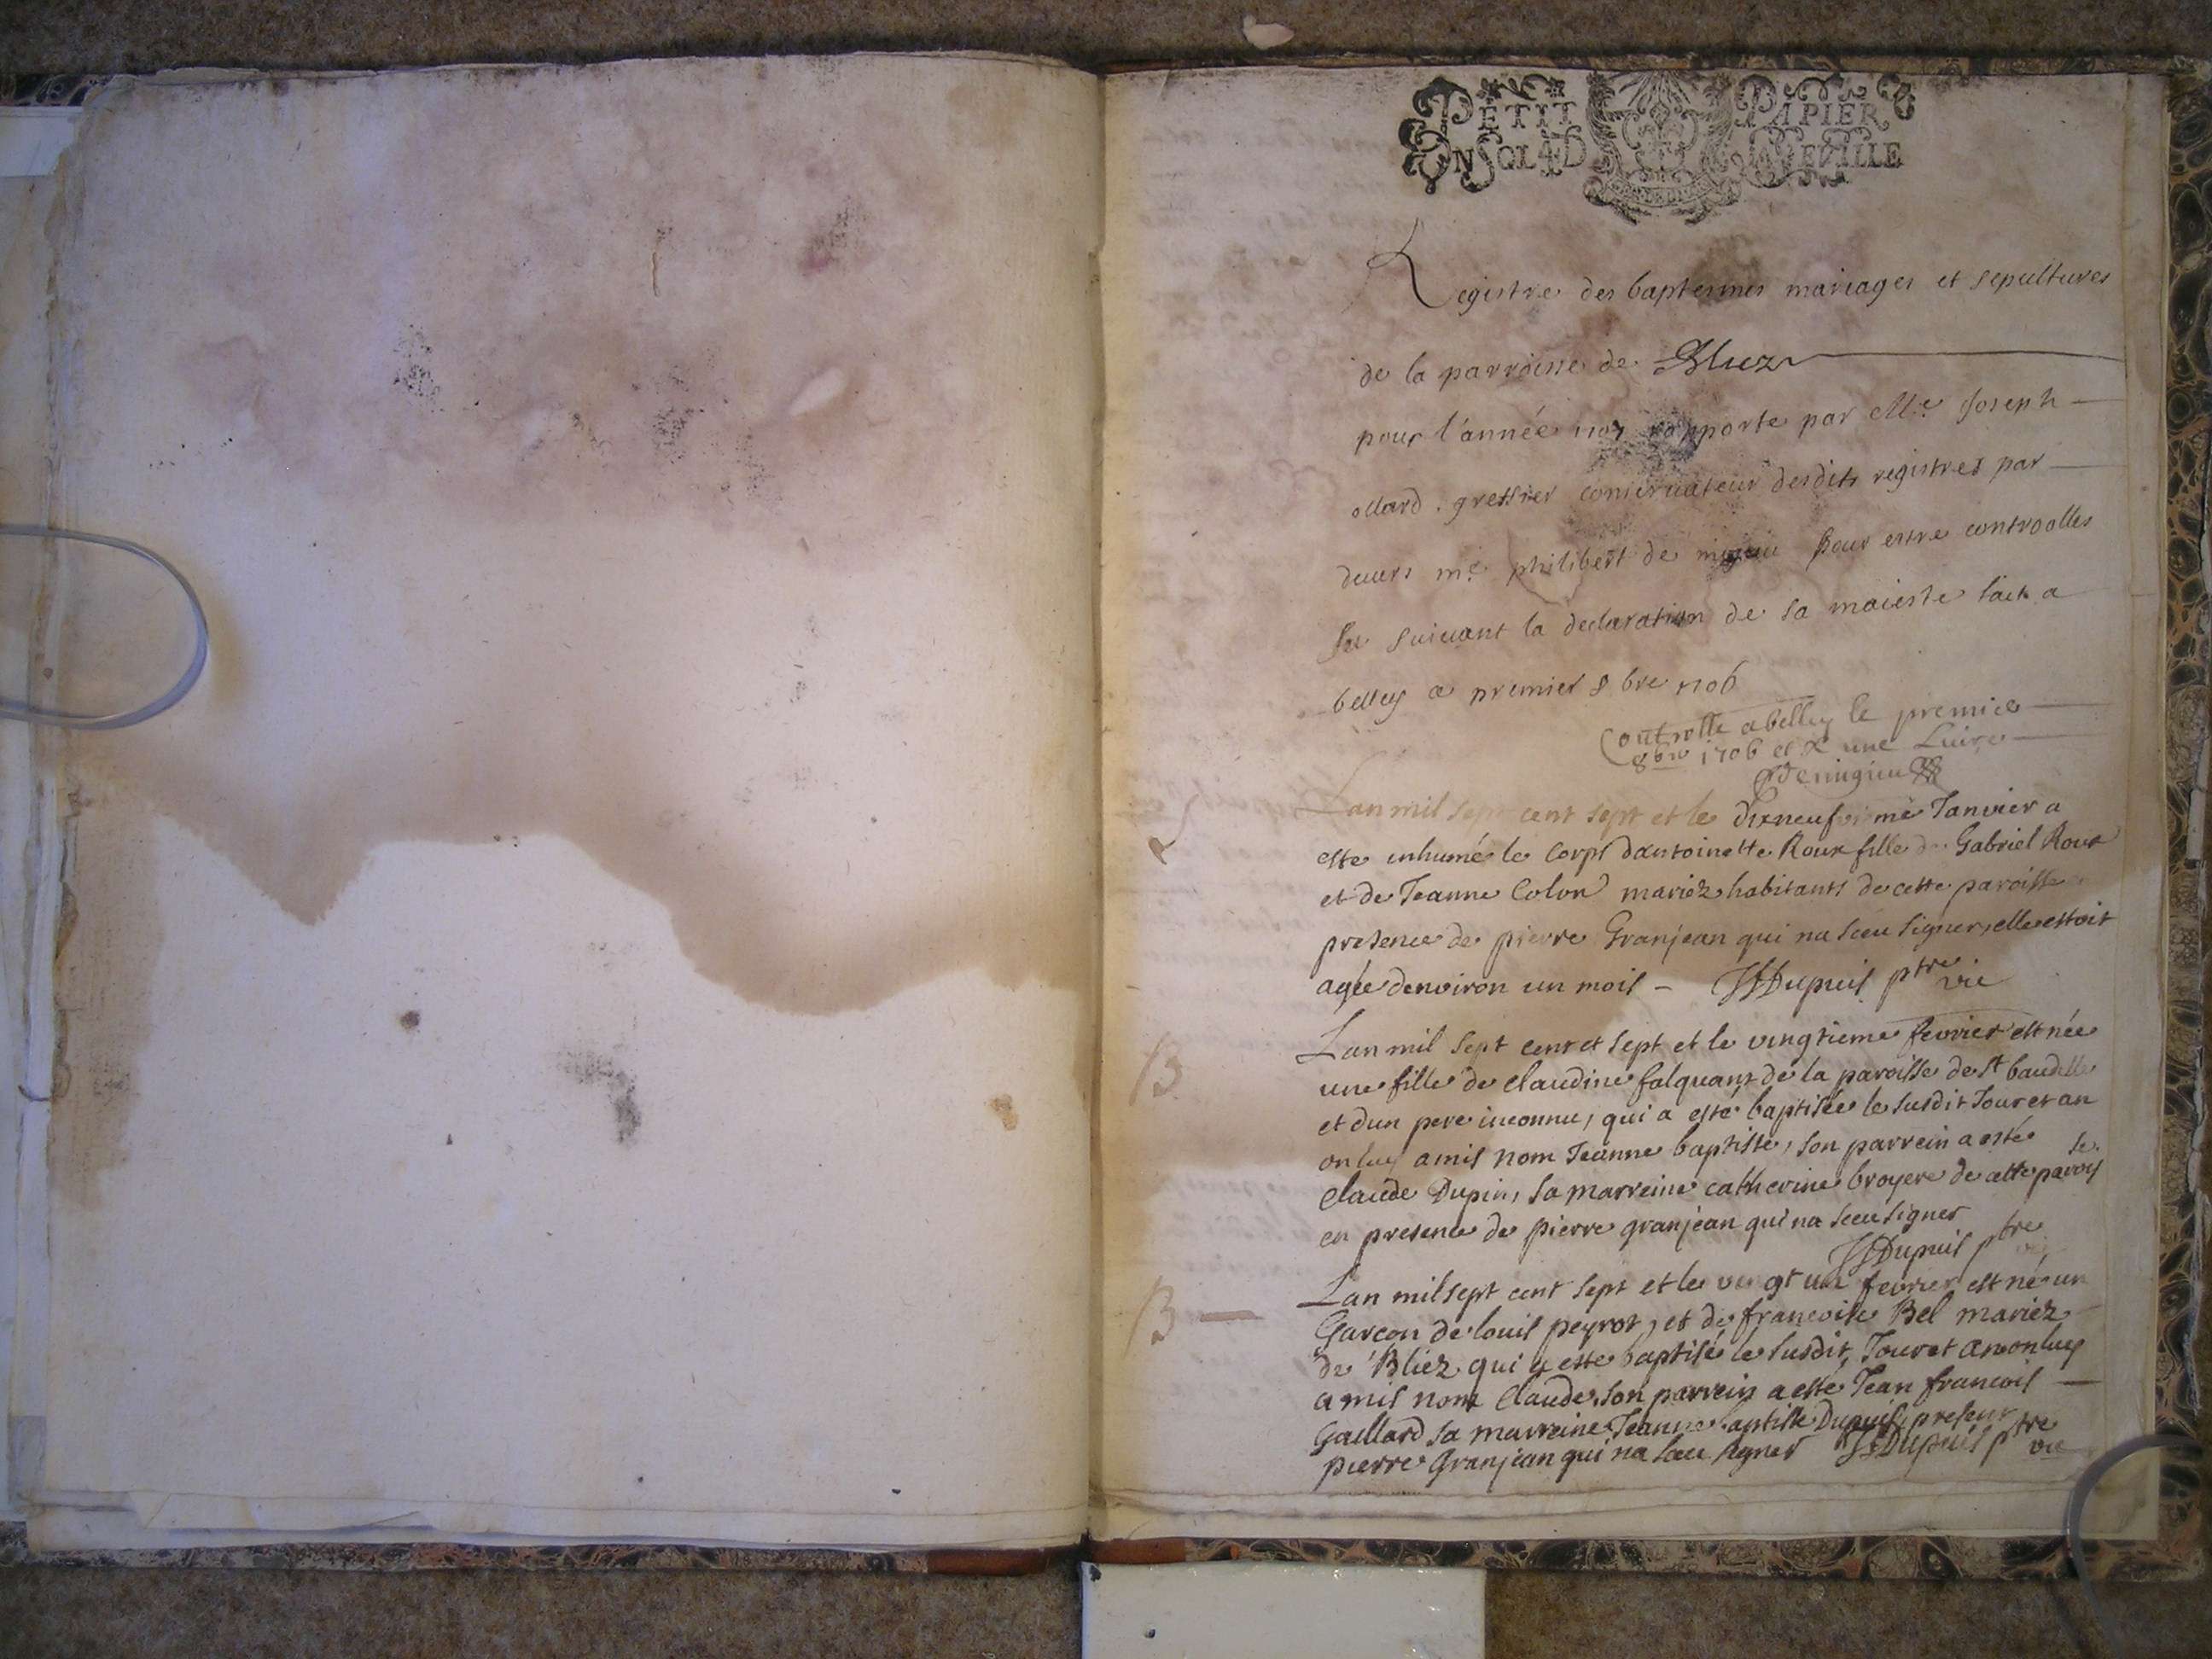 PETIT PAPIER
UN SOL 4 D LE VILLE
Registre des baptesmes mariages et sepultures
de la parroisse de
pour l'année 1707 rapporte par Me Joseph
ollard greffier conservateur desdits registres par
devers me philibert de pour estre controolles
suivant la declaration de sa maieste faict a
belley ce premier 8bre 1706
Controlle a belley le premier
8bre 1706 et R une Livre
Demigieu
Lan mil sept cent sept et le dixneufvieme Janvier a
este inhumé le corps dantoinette Roux fille de Gabriel Roux
et de Jeanne Colon mariéz habitants de cette paroisse
presence de pierre Granjean qui na sceu signer, elle estoit
agée denviron un mois - Dupuis ptre vic
B
Lan mil sept cent et sept et le vingtieme fevrier est née
une fille de claudine falquant de la paroisse de St baudille
et dun pere inconnu, qui a esté baptisée le susdit Jour et an
on luy a mis nom Jeanne baptiste, son parrein a esté
claude Dupin, sa marreine catherine broyere de cette parois
se.
en presence de pierre granjean qui na sceu signer
Dupuis ptre
B
Lan mil sept cent sept et le vingt un fevrier est né un
Garcon de louis peyrot, et de francoise Bel mariéz
de Bliez qui a este baptisé le susdit Jour et an on luy
a mis nom Claude, son parrein a esté Jean francois
Gaillard sa marreine Jeanne baptiste Dupuis, present
pierre Granjean qui na sceu signer Dupuis ptre vic